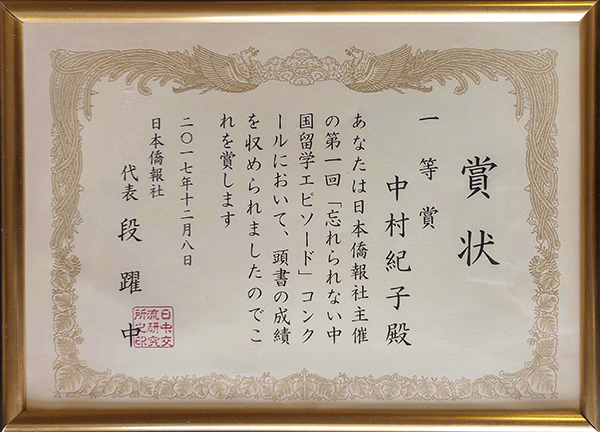 賞状
一等賞
中村紀子殿
あなたは日本僑報社主催
の第一回「忘れられない中
国留学エピソード」コンク
ールにおいて、頭書の成績
を収められましたのでこ
れを賞します
二〇一七年十二月八日
日本僑報社
代表 段躍中
日中交
流研究
所之印